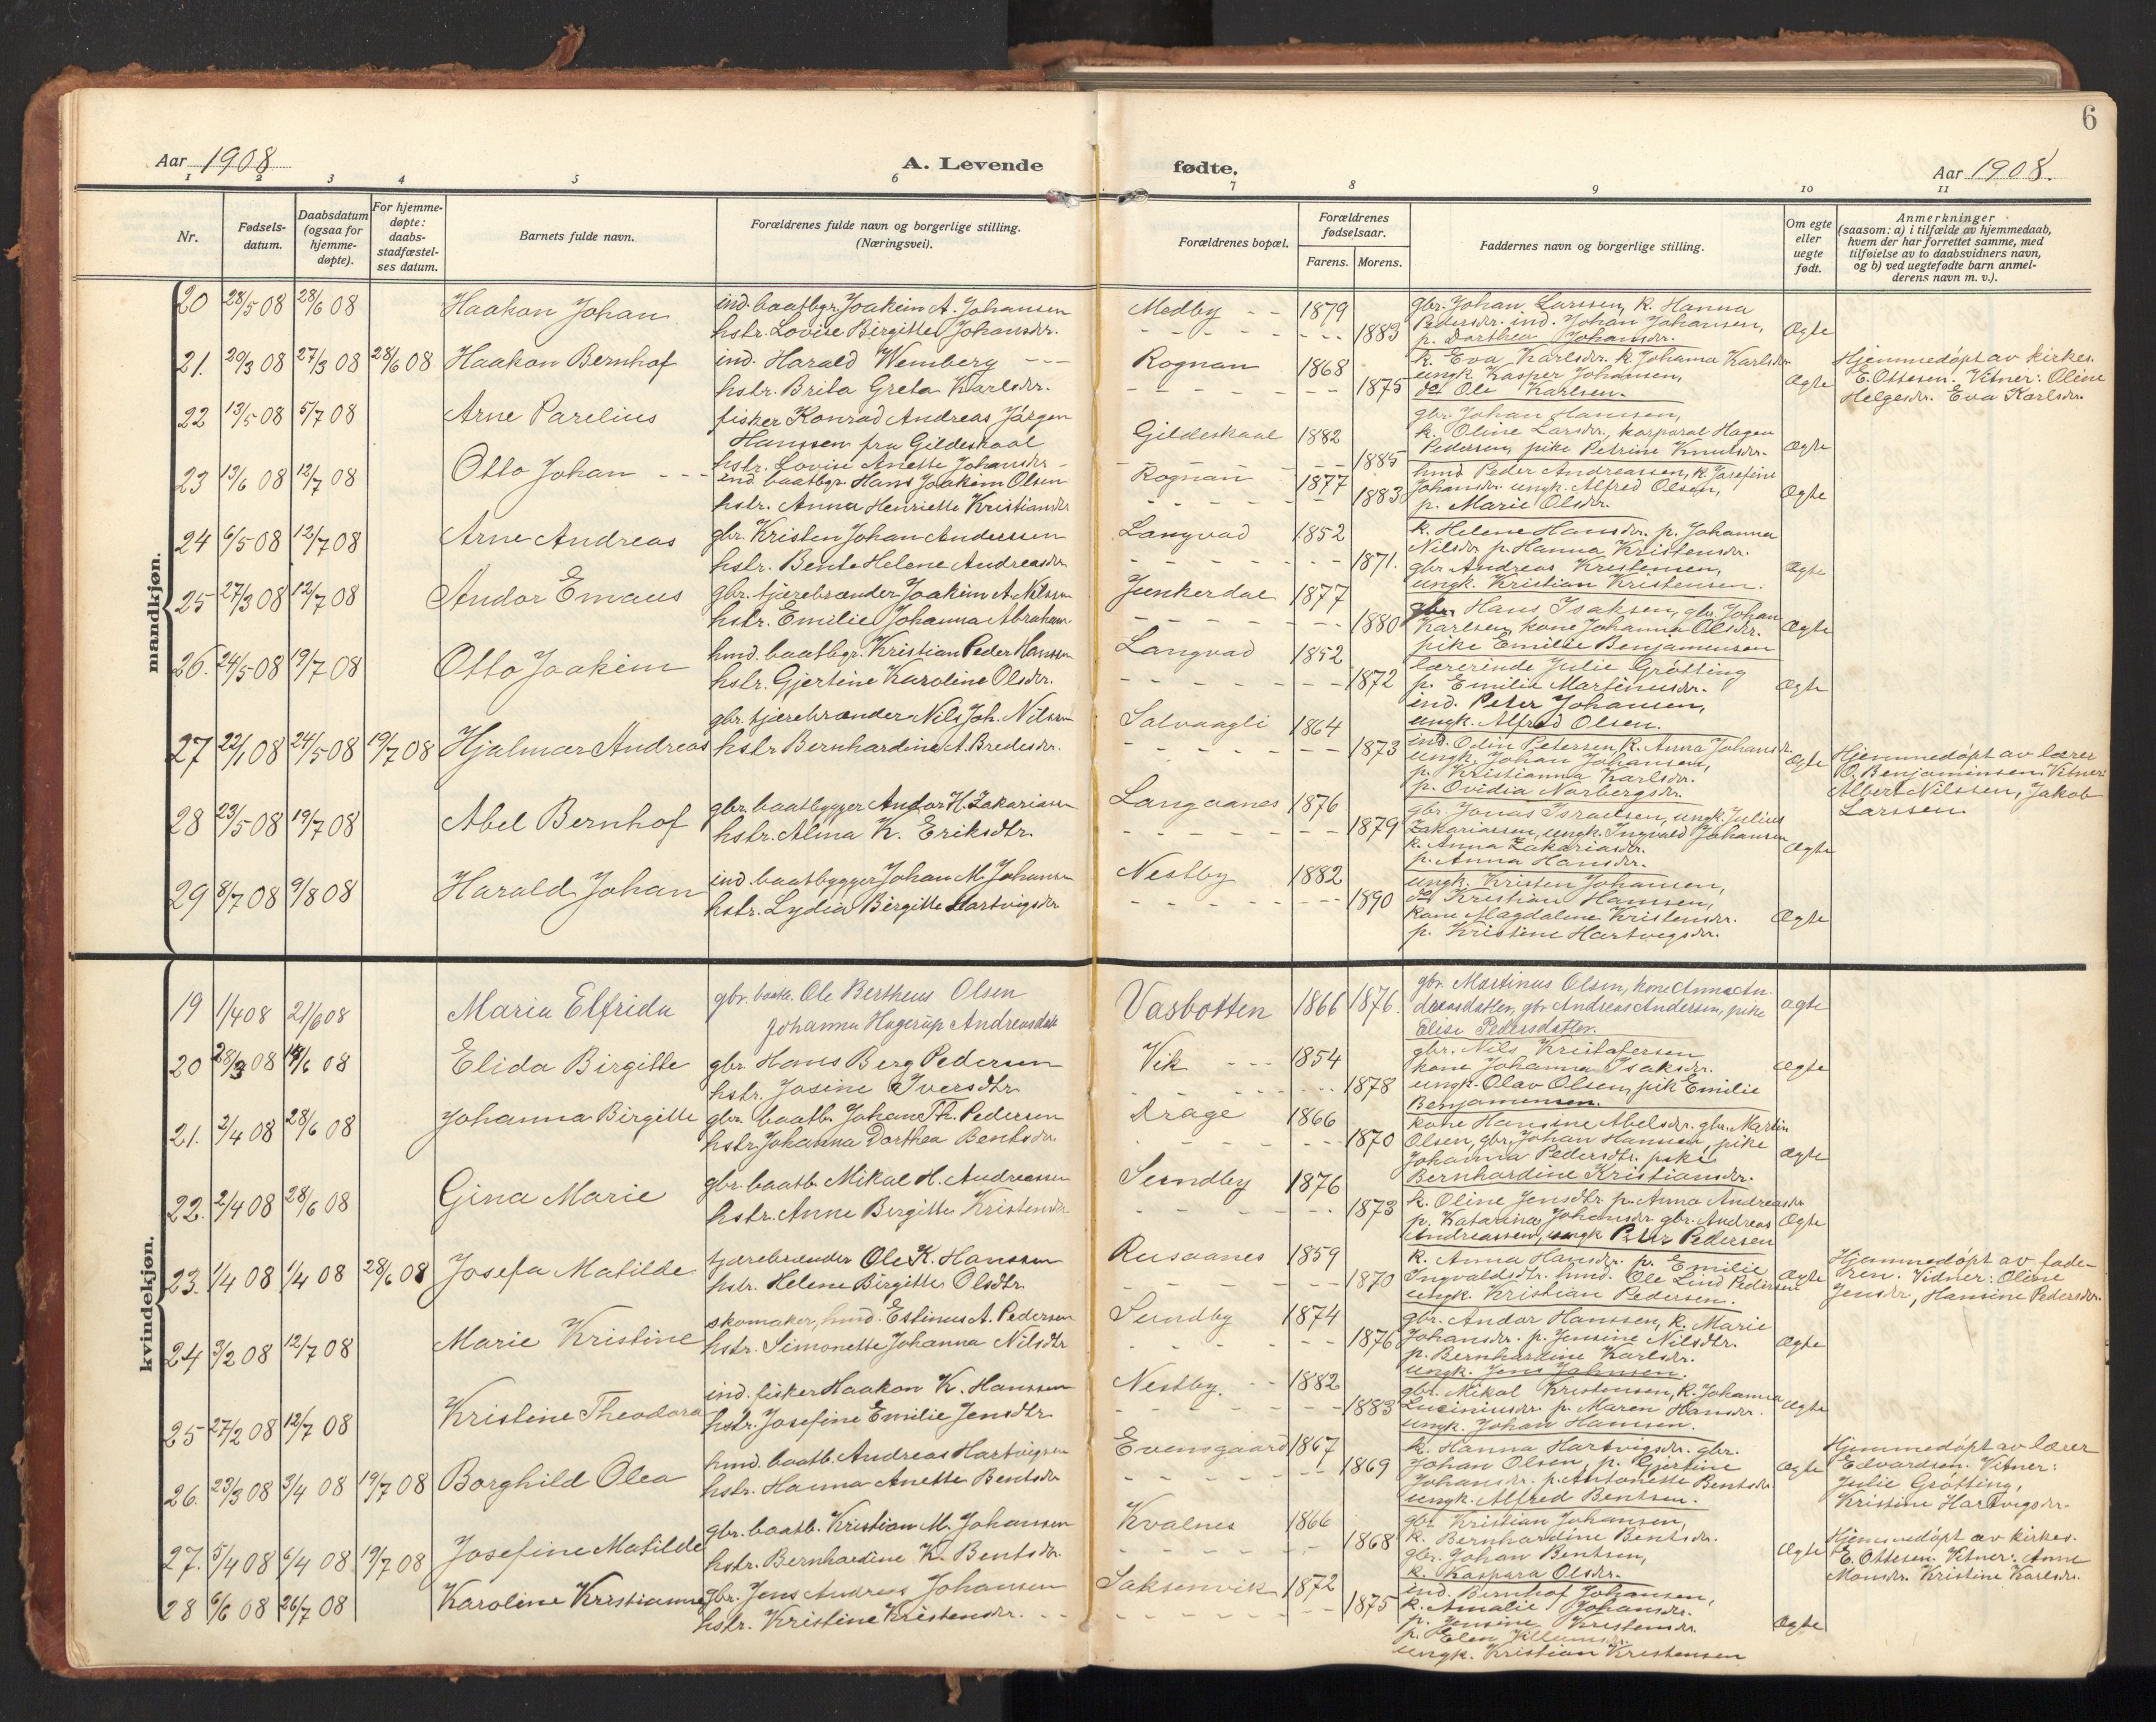 6
Aar 1908
A. Levende
fødte.
Aar 1908.
1 2 3 4 5 6 7 8 9 10 11
Nr.
Fødsels-
datum.
Daabsdatum
(ogsaa for
hjemme-
døpte).
For hjemme-
døpte:
daabs-
stadfæstel-
ses datum.
Barnets fulde navn.
Forældrenes fulde navn og borgerlige stilling.
(Næringsvei).
Forældrenes bopæl.
Forældrenes
fødselsaar.
Farens. Morens.
Faddernes navn og borgerlige stilling.
Om egte
eller
uegte
født.
Anmerkninger
(saasom: a) i tilfælde av hjemmedaab,
hvem der har forrettet samme, med
tilføielse av to daabsvidners navn,
og b) ved uegtefødte barn anmel-
derens navn m. v.).
mandkjøn.
20 28/5 08 28/6 08 Haakon Johan
ind. baatbgr. Joakim A. Johansen
hstr. Lovise Birgitte Johansdr.
Medby 1879
1883
gbr. Johan Larssen, k. Hanna
Pedersdr. ind. Johan Johansen,
p. Dorthea Johansdr.
Ægte
21. 20/3 08 27/3 08 28/6 08 Haakon Bernhof
ind. Harald Wemberg
hstr. Brita Greta Karlsdr.
Rognan 1868
1875
k. Eva Karlsdr. k. Johanna Karlsdr.
ungk. Kasper Johansen,
do Ole Karlsen.
Ægte
Hjemmedøpt av kirkes.
E. Ottesen. Vitner: Oline
Helgesdr. Eva Karlsdr.
22 13/5 08 5/7 08 Arne Parelius
fisker Konrad Andreas Jørgen
Hanssen fra Gildeskaal
hstr. Lovise Anette Johansdr
Gildeskaal 1882
1885
gbr. Johan Hanssen,
k. Oline Larsdr, korporal Hagen
Pedersen, pike Petrine Knutsdr.
Ægte
23 13/6 08 12/7 08 Otto Johan
ind baatbgr. Hans Joakim Olsen
hstr. Anna Henriette Kristiansdr
Rognan 1877
1883
hmd. Peder Andreassen, k. Josefine
Johansdr. ungk. Alfred Olsen,
p. Marie Olsdr.
Ægte
24 6/5 08 12/7 08 Arne Andreas
gbr. Kristen Johan Andersen
hstr. Bente Helene Andreasdr
Langvad 1852
1871.
k. Helene Hansdr. p. Johanna
Nilsdr p. Hanna Kristensdr.
gbr Andreas Kristensen,
ungk. Kristian Kristensen.
Ægte
25 27/3 08 12/7 08 Andor Emaus
gbr. tjærebrænder Joakim A. Nilssen
hstr. Emilie Johanna Abraham
Junkerdal 1877
1880
gbr. Hans Isaksen, gbr. Johan
Karlsen, kone Johanna Olsdr.
pike Emilie Benjaminsen
Ægte
26. 24/5 08 19/7 08 Otto Joakim
hmd. baatbgr. Kristian Peder Hanssen
hstr. Gjertine Karoline Olsdr.
Langvad 1852
1872
lærerinde Julie Grøtting
p. Emilie Martinusdr.
ind. Peter Johansen,
ungk. Alfred Olsen.
Ægte
27 22/1 08 24/5 08 19/7 08 Hjalmar Andreas
gbr. tjærebrænder Nils Joh. Nilssen
hstr Bernhardine A. Bredesdr.
Solvaagli 1864
1873
ind. Odin Petersen k. Anna Johansdr
ungk. Johan Johansen,
p. Kristianna Karlsdr.
p. Ovidia Norbergsdr.
Ægte
Hjemmedøpt av lærer
O. Benjaminsen. Vitner:
Albert Nilssen, Jakob
Larssen
28 23/5 08 19/7 08 Abel Bernhof
gbr. baatbygger Andor H. Zakariasen
hstr. Alma K. Eriksdtr.
Langaanes 1876
1879
gbr Jonas Israelsen, ungk. Julius
Zakariassen, ungk. Ingvald Johansen
k. Anna Zakariasdr.
p. Anna Hansdr.
Ægte
29 8/7 08 9/8 08 Harald Johan
ind. baatbygger Johan M. Johansen
hstr. Lydia Birgitte Hartvigsdr
Nestby 1882
1890
ungk. Kristen Johansen,
do Kristian Hanssen,
kone Magdalene Kristensdr.
p. Kristine Hartvigsdr.
Ægte
kvindekjøn.
19 1/4 08 21/6 08 Maria Elfrida
gbr. baatb. Ole Bertheus Olsen
Johanna Hagerup Andreasdatt
Vasbotten 1866 1876.
gbr. Martinus Olsen, kone Anna An-
dreasdatter, gbr Andreas Andersen, pike
Elise Pedersdatter.
ægte
20 28/3 08 14/6 08 Elida Birgitte
gbr. Hans Berg Pedersen
hstr. Josine Iversdtr.
Vik 1854
1878
gbr. Nils Kristofersen
kone Johanna Isaksdr.
ungk. Olav Olsen, pik Emilie
Benjaminsen.
Ægte
21. 2/4 08 28/6 08 Johanna Birgitte
gbr. baatb. Johan Th. Pedersen
hstr. Johanna Dorthea Bentsdr.
Drage 1866
1870
kone Hansine Abelsdr. gbr. Martin
Olsen, gbr. Johan Hanssen, pike
Johanna Pedersdtr. pike
Bernhardine Kristiansdr.
Ægte
22. 2/4 08 28/6 08 Gina Marie
gbr. baatb. Mikal H. Andreassen
hstr. Anne Birgitte Kristensdr
Sundby 1876
1873
k. Oline Jensdtr p. Anna Andreasdr
p. Katarina Johansdr gbr. Andreas
Andreassen, ungk Peter Pedersen
Ægte
23. 1/4 08 1/4 08 28/6 08 Josefa Matilde
tjærebrænder Ole K. Hanssen
hstr. Helene Birgitte Olsdtr.
Rusaanes 1859
1870
k. Anna Hansdr. p. Emilie
Ingvaldsdtr. hmd. Ole Lind Pedersen
ungk. Kristian Pedersen.
Ægte
Hjemmedøpt av fade-
ren. Vidner: Oline
Jensdr, Hansine Pedersdr.
24 3/2 08 12/7 08 Marie Kristine
skomaker, hmd. Estinus A. Pedersen
hstr. Simonette Johanna Nilsdtr
Sundby 1874
1876
gbr. Andor Hanssen, k. Marie
Johansdr. p. Jensine Nilsdtr.
p. Bernhardine Karlsdr.
ungk. Jens Johnsen.
Ægte
25 27/2 08 12/7 08 Kristine Theodora
ind. fisker Haakon K. Hanssen
hstr. Josefine Emilie Jensdtr
Nestby. 1882
1883
gbr. Mikal Kristensen, k. Johanna
Luciniusdr p. Maren Hansdr.
ungk. Johan Hanssen.
Ægte
26. 23/3 08 3/4 08 19/7 08 Borghild Olea
hmd. baatb. Andreas Hartvigsen
hstr. Hanna Anette Bentsdr
Evensgaard 1867
1869
k. Hanna Hartvigsdr. gbr.
Johan Olsen, p. Gjertine
Johansdr. p. Antonette Bentsdr.
ungk. Alfred Bentsen.
Ægte
Hjemmedøpt av lærer
Edvardsen. Vitner:
Julie Grøtting,
Kristine Hartvigsdr.
27. 5/4 08 6/4 08 19/7 08 Josefine Matilde
gbr. baatb. Kristian M. Johansen
hstr. Bernhardine K. Bentsdr.
Kvalnes 1866
1868
gbr. Kristian Johansen,
k. Bernhardine Bentsdr.
gbr. Johan Bentsen,
k. Kaspara Olsdr.
Ægte
Hjemmedøpt av kirkes.
E. Ottesen. Vitner: Anne
Monsdr. Kristine Karlsdr.
28 6/6 08 26/7 08 Karoline Kristianne
gbr. Jens Andreas Johansen
hstr. Kristine Kristensdr.
Saksenvik 1872
1875
ind. Bernhof Johansen,
k. Amalie Johansdr.
p. Jensine Kristensdr
p. Elen
ungk. Kristian Kristensen
Ægte